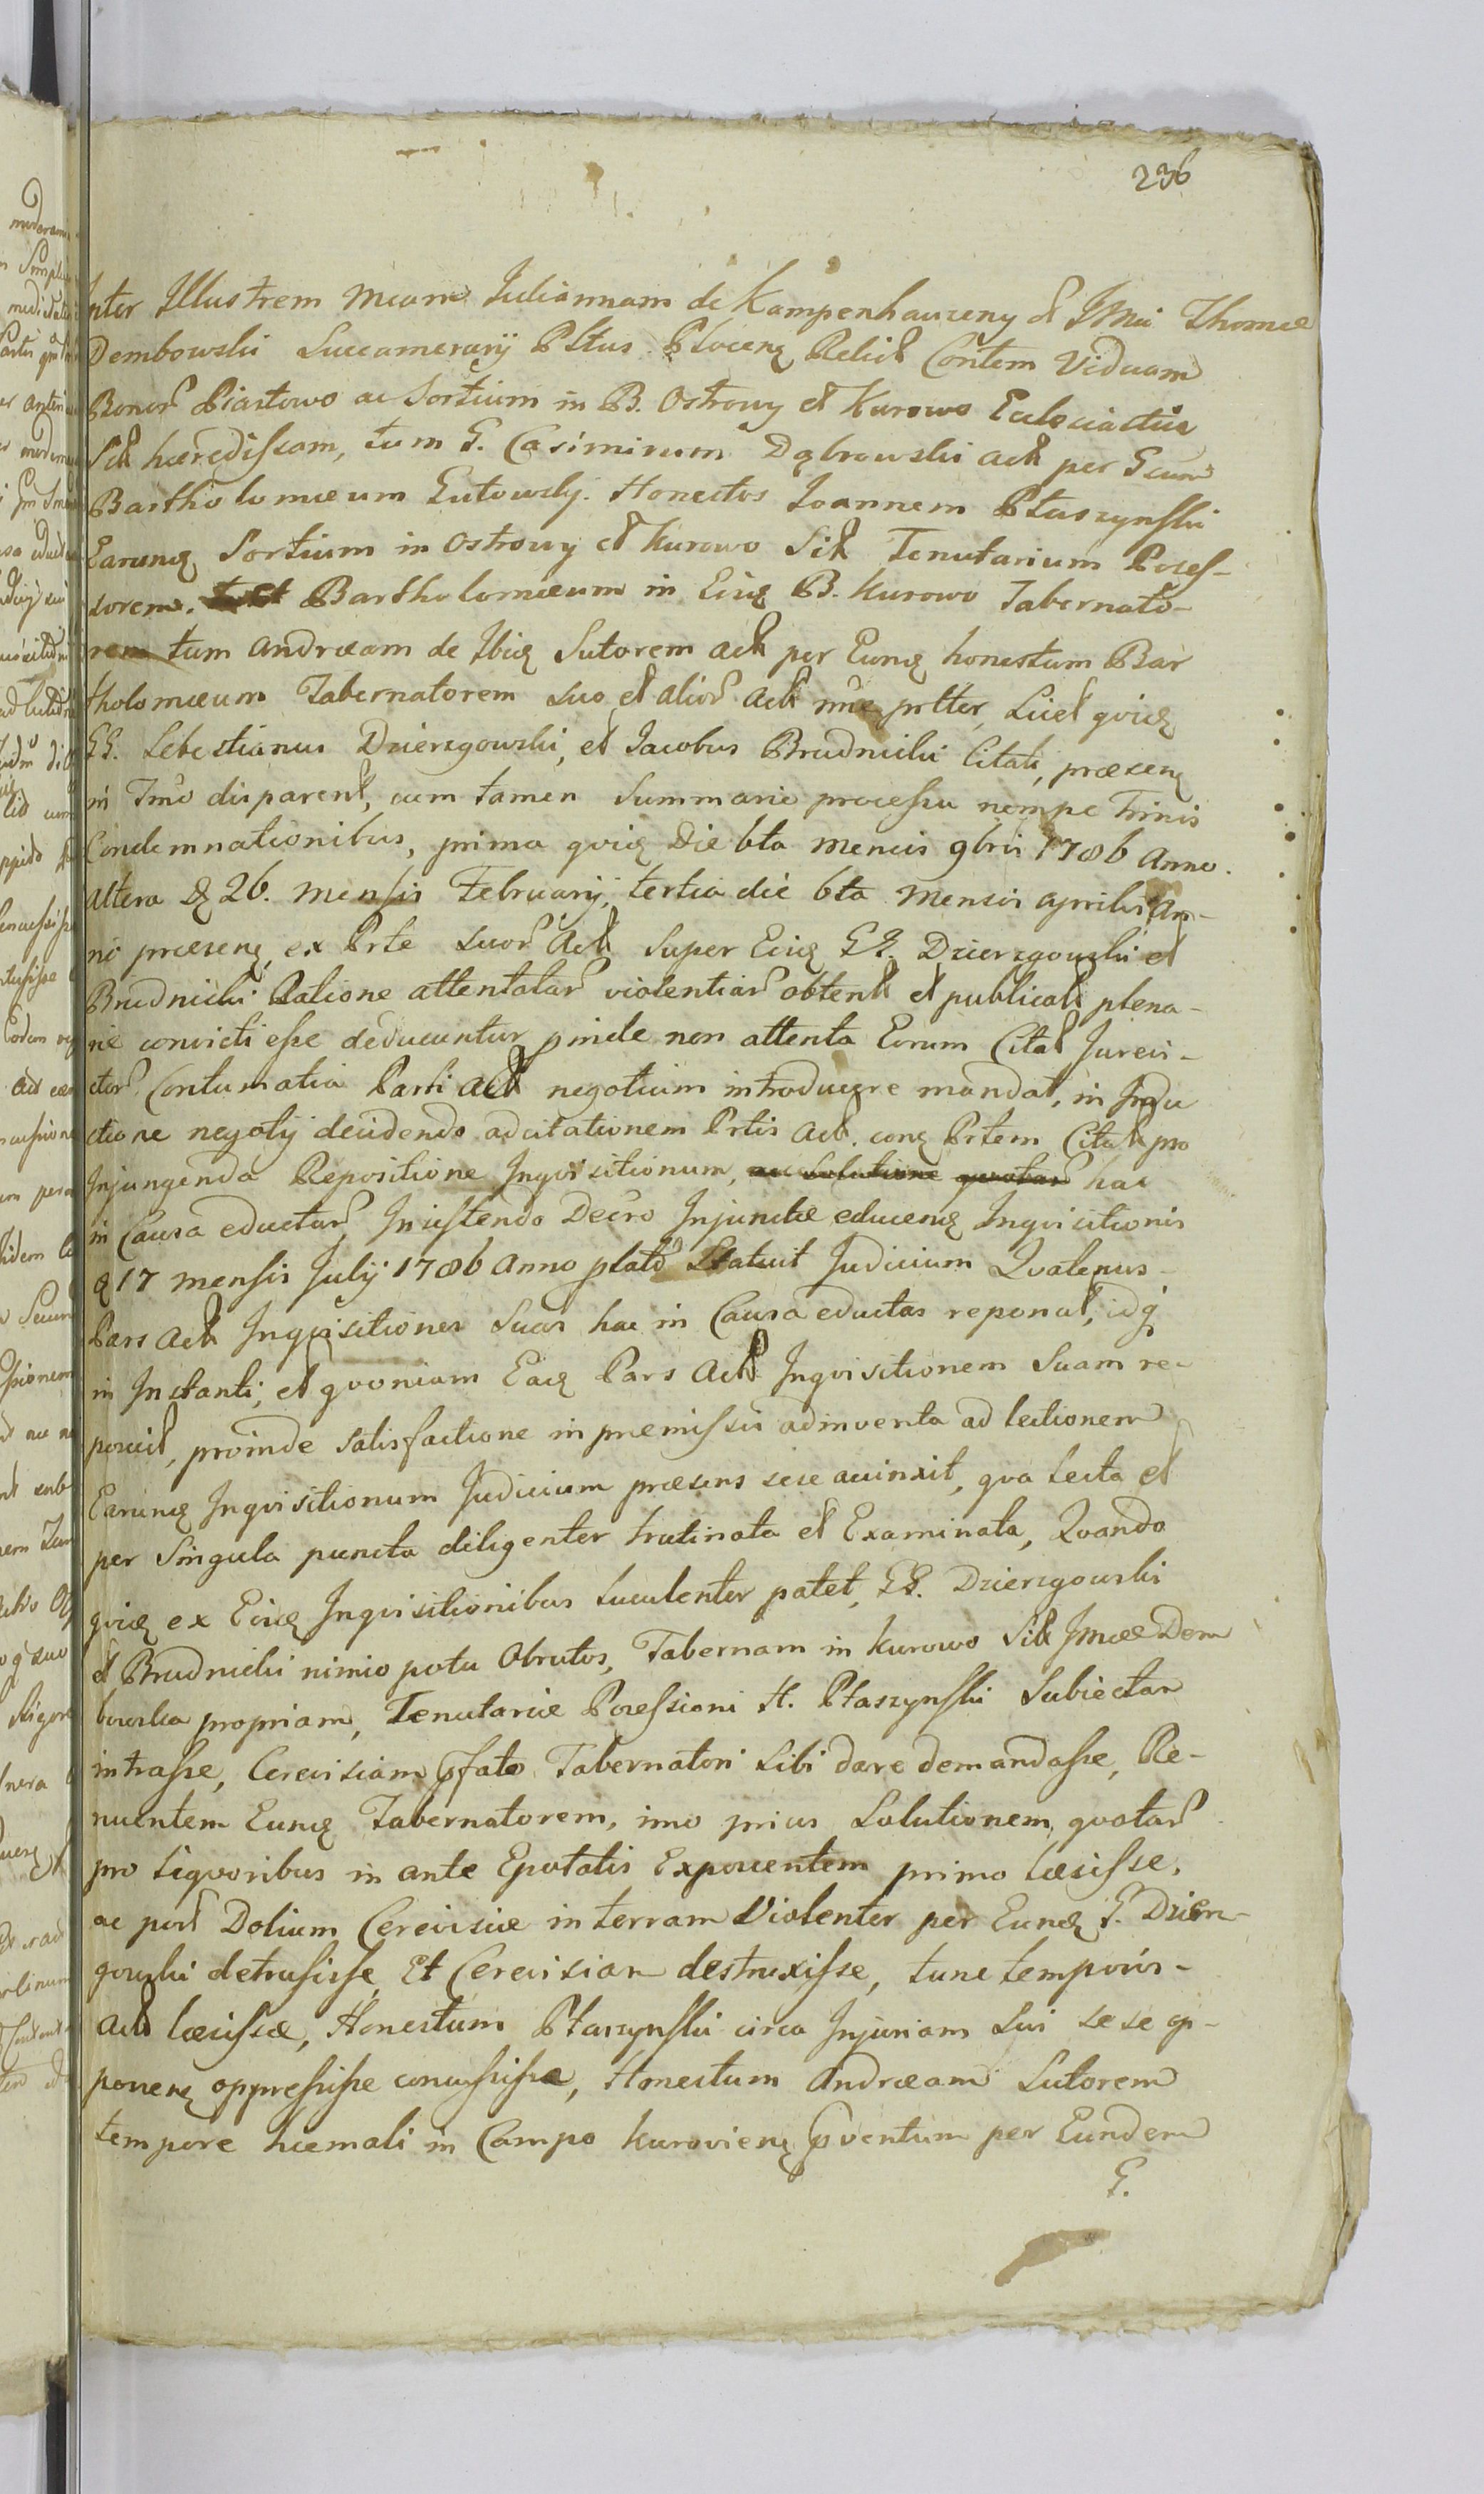 236
Inter Illustrem Mcam Juliannam de Kampenhauzeny et JMci Thomæ
Dembowski Succamerarij Pltus Plocenę Relict Contem Viduam
Bonor Piastowo ac Sortium in B. Ostrowy et Kurowo Eccleciastus
Sit hæredissam, tum G. Casimirum Dąbrowski act per Gcum
Bartholomæum Gutowsky. Honestos Joannem Ptaszynski
Earunę Sortium in Ostrowy et Kurowo Sit Tenutarium Poses-
sorem. Bartholomæum in Eisę B. Kurowo Tabernato-
rem tum Andræam de Ibię Sutorem act per Eunę honestum Bar
tholomæum Tabernatorem suo et alior act nne prtter, Licet qvię
GG. Sebestianus Dzierzgowski, et Jacobus Brudnicki Citati, præsenę
in Tmo disparent, cum tamen Summarie processu nempe Trinis
Condemnationibus, prima qvię Die 6ta Mensis 9bris 1786 Anno.
altera D 26. Mensis February, tertia die 6ta Mensis Aprilis An-
no præsenę, ex Prte suor Act Super Eisę GG. Dzierzgowski et
Brudnicki Ratione attentatar violentiar obtent et publicat plena-
rie convicti esse deducuntur pinde non attenta Eorum Citat Jurevi-
ctor Contumatia Parti Act negotium introducere mandat, in Indu
ctione negotij decidendo ad citationem Prtis Act. conę Prtem Citat pro
Injungenda Repositione Inqvisitionum, ac Solutione qvotar hac
in Causa eductar, Insistendo Decro Injunctæ educenę Inqvisitionis
D 17 Mensis July 1786 Anno plato Statuit Judicium Qvatenus
Pars Act Inqvisitiones Suas hac in Causa eductas reponat, idq
in Instanti, et qvoniam Eadę Pars Act Inqvisitionem Suam re-
posuit, proinde satisfactione in præmissis adinventa ad lectionem
Earunę Inqvisitionum Judicium præsens sese accinxit, qva lecta et
per Singula puncta diligenter trutinata et Examinata, Qvando
qvię ex Eisę Inqvisitionibus luculenter patet, GG. Dzierzgowski
et Brudnicki nimio potu Obrutos, Tabernam in Kurowo Sit Jmcæ Dem
bowska propriam, Tenutariæ Posessioni H. Ptaszynski Subiectam
intrasse, Cerevisiam pfato Tabernatori Sibi dare demandasse, Re-
nuentem Eunę Tabernatorem, imo prius Solutionem qvotar
pro liqvoribus in ante Epotatis Exposcentem primo læsisse,
ac post Dolium Cerevisiæ in terram Violenter per Eunę G. Dzierz-
gowski detrusisse, Et Cerevisiam destruxisse, tunc temporis-
Act læsisse, Honestum Ptaszynski circa Injuriam Sui sese op-
ponenę oppressisse concussisse, Honestum Andræam Sutorem
tempore hiemali in Campo Kurovienę pventum per Eundem
G.